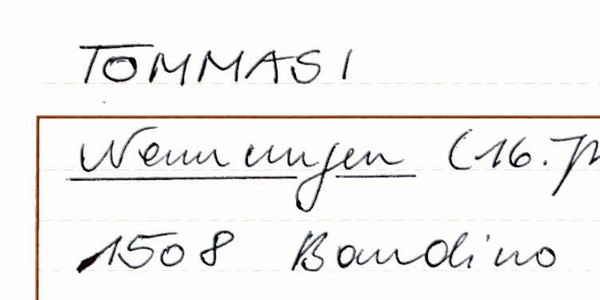 TOMMASI
Nennungen (16. Jh
1508 Bandino